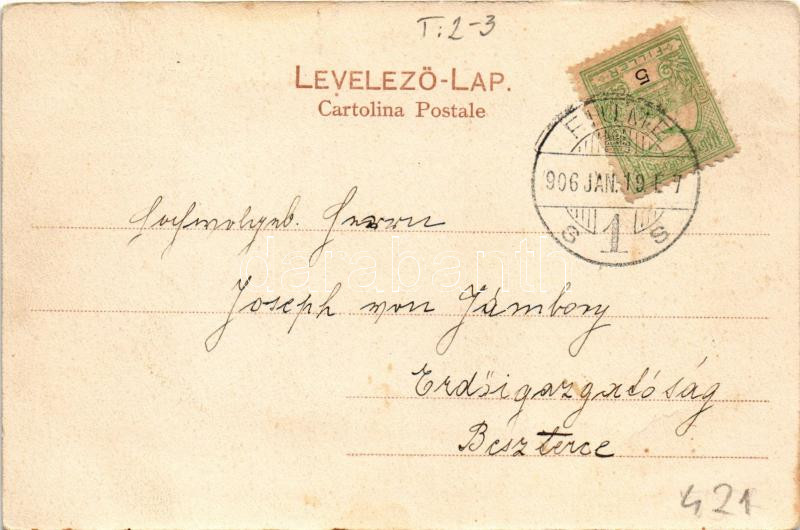 T:2-3
LEVELEZŐ-LAP.
Cartolina Postale
FILLÉR
5
FIUME
906 JAN. 19 E 7
S 1 S
Hochwolgeb. Herrn
Joseph von Jámbory
Erdőigazgatóság
Beszterce
darabanth
421